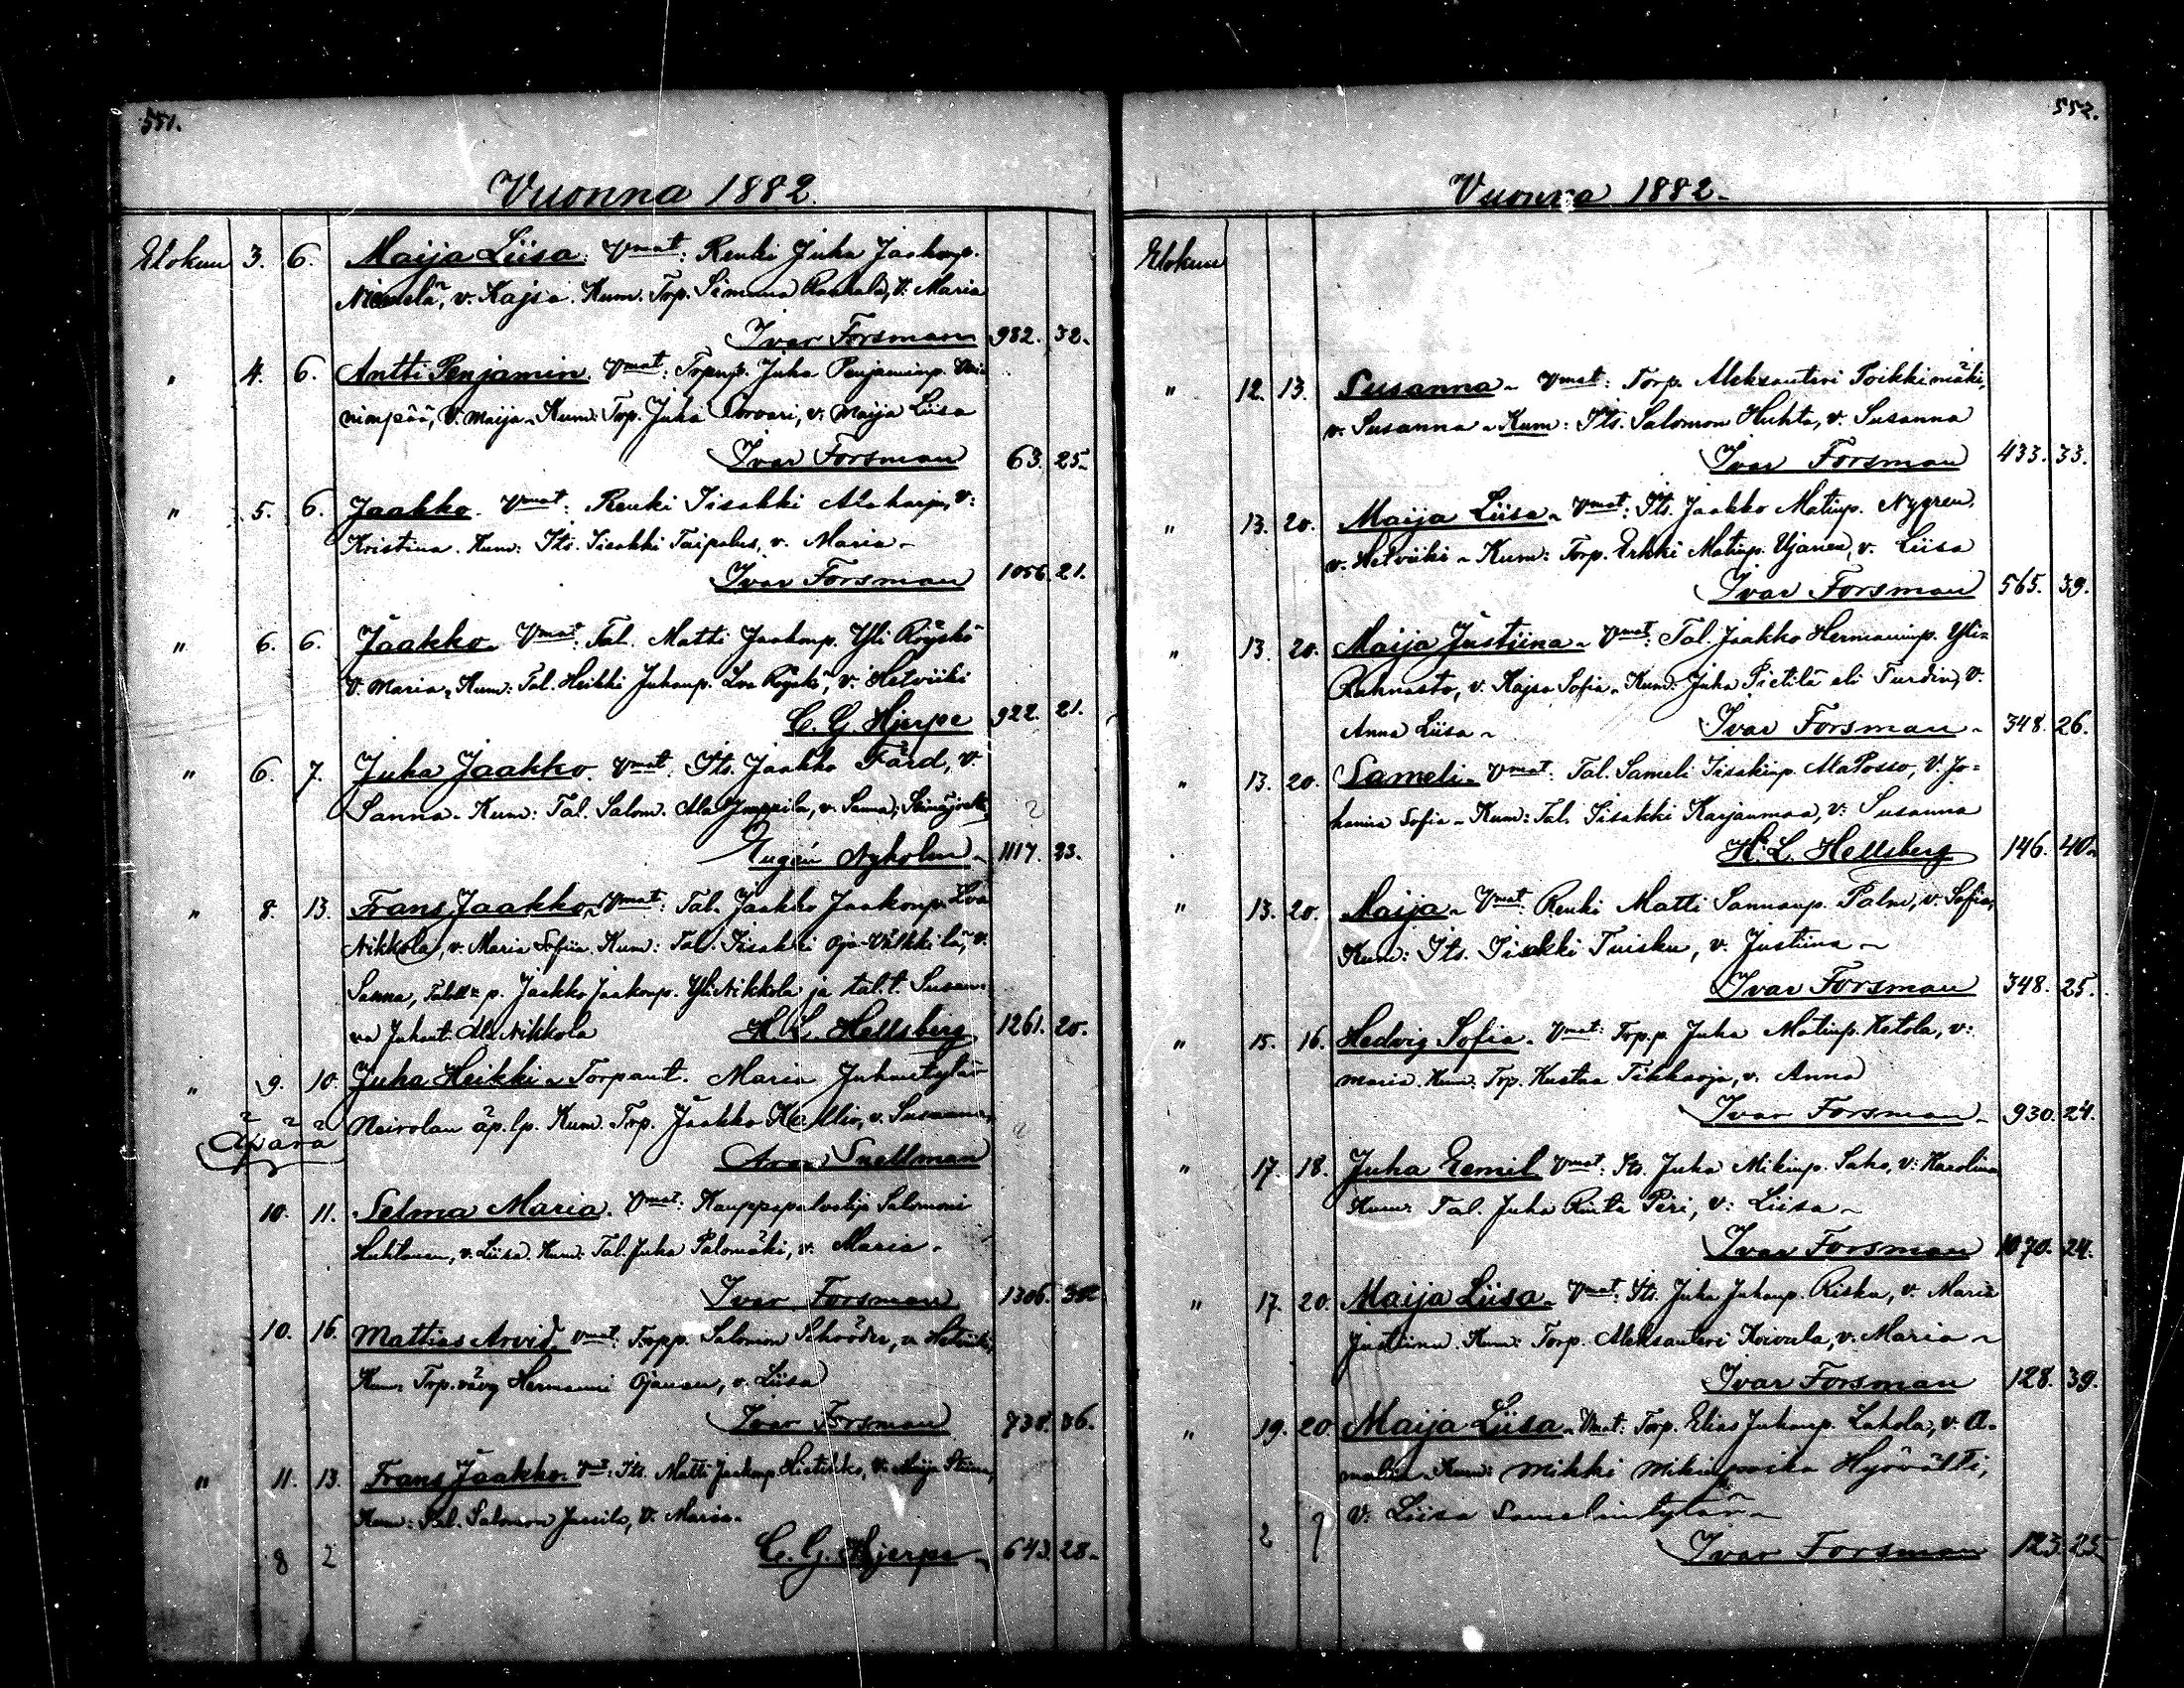 551.
Vuonna 1882.
Elokuu 3. 6. Maija Liisa. Vmat: Renki Juha Jaakonp.
Niemelä, v. Kajsa. Kum. Trp. Simuna Raukala, V. Maria
Ivar Forsman 982. 32.
" 4. 6. Antti Penjamin. Vmat: Trpnp. Juha Penjaminp.
nimpää, V. Maija. Kum: Trp. Juha Porvari, v. Maija Liisa
Ivar Forsman 63. 25.
" 5. 6. Jaakko. Vmat: Renki Iisakki Alaharju, v:
Kristina. Kum: Its. Iisakki Taipalus, v. Maria.
Ivar Forsman 1056. 21.
" 6. 6. Jaakko. Vmat: Tal. Matti Jaakonp. Yli Röyskö
V. Maria. Kum: Tal. Heikki Juhanp. Lva Röyskö, v. Hetviiki
C. G. Hjerpe 922. 21.
" 6. 7. Juha Jaakko. Vmat: Its. Jaakko Färd, v.
Sanna. Kum: Tal. Salom. Ala Jyppilä, v. Sanna,
Eugén Nyholm 1117. 23.
" 8. 13. Frans Jaakko. Vmat: Tal. Jaakko Jaakonp. Lva
Nikkola, v. Maria Sofiia. Kum: Tal. Iisakki Oja-Välkkilä, v.
Sanna, p. Jaakko Jaakonp. Yli Nikkola ja tal.t. Susan-
na Juhant. Ala Nikkola H. L. Hellsberg 1261. 20.
" 9. 10. Juha Heikki. Torpant. Maria Juhantytär
Äpärä Neirolan äp. lp. Kum. Trp. Jaakko Kallio, v. Susanna.
Aron Snellman
10. 11. Selma Maria. Vmat: Kauppapalvelija Salomoni
Huhtanen, v. Liisa. Kum: Tal. Juha Palomäki, v. Maria.
Ivar Forsman 1306.
10. 16. Mattias Arvid. Vmat: Torpp. Salomon Schrööder, v. Hetviiki,
Kum. Trp. vävy Hermanni Ojanen, v. Liisa
Ivar Forsman 738. 36.
" 11. 13. Frans Jaakko. Vmat: Its. Matti Jaakonp. Hietikko, V. Maija Stiina,
Kum: Tal. Salomon Jussila, V. Maria.
8 2 C. G. Hjerpe 643. 28.
552.
Vuonna 1882.
Elokuu
" 12. 13. Susanna. Vmat: Torp. Aleksanteri Poikkimäki,
v. Susanna. Kum: Its. Salomon Huhta, v. Susanna
Ivar Forsman 433. 33.
" 13. 20. Maija Liisa. Vmat: Its. Jaakko Matinp. Nygren,
v. Hetviiki. Kum: Torp. Erkki Matinp. Ujanen, v. Liisa
Ivar Forsman 565. 39.
" 13. 20. Maija Justiina. Vmat: Tal. Jaakko Hermannip. Yli-
Rahnasto, v. Kajsa Sofia. Kum: Juha Pietilä eli Turdin, V.
Anna Liisa. Ivar Forsman 348. 26.
" 13. 20. Sameli. Vmat: Tal. Sameli Iisakinp. Ala Posso, V. Jo-
hanna Sofia. Kum: Tal. Iisakki Karjanmaa, v: Susanna
H. L. Hellsberg 146. 40.
" 13. 20. Maija. Vmat: Renki Matti Sannanp. Palm, v. Sofia,
Kum: Its. Iisakki Tuisku, v. Justiina
Ivar Forsman 348. 25.
" 15. 16. Hedvig Sofia. Vmat: Trp.p. Juha Matinp. Ketola, v:
Maria. Kum. Trp. Kustaa Tikkaoja, v. Anna
Ivar Forsman 930. 24.
" 17. 18. Juha Eemil Vmat: Its. Juha Mikinp. Saho, v: Karolina
Kum: Tal. Juha Rinta Piri, v: Liisa
Ivar Forsman 1070. 24.
" 17. 20. Maija Liisa. Vmat: Its. Juha Juhanp. Riska, v. Maria
Justiina. Kum: Torp. Aleksanteri Koivula, v. Maria
Ivar Forsman 128. 39.
" 19. 20. Maija Liisa. Vmat: Torp. Elias Juhanp. Lahola, v. A-
malia. Kum: Mikki Mikinpoika Hyövälti,
V. Liisa Samelintytär
2 9 Ivar Forsman 123. 25.